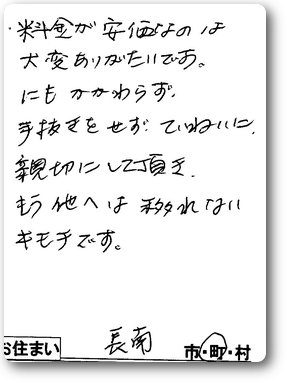 ・料金が安価なのは
大変ありがたいです。
にもかかわらず、
手抜きをせず、ていねいに、
親切にして頂き、
もう他へは移れない
キモチです。
お住まい 長南 市・町・村